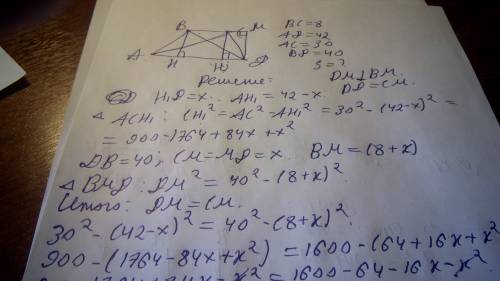 B C M
A H H₁ D
BC=8
AD=42
AC=30
BD=40
S=?
Решение:
DM⊥BM.
H₁D=x; AH₁=42-x.
△ACH₁: CH₁²=AC²-AH₁²=30²-(42-x)²=
=900-1764+84x+x²
DB=40; CM=MD=x. BM=(8+x)
△BMD: DM²=40²-(8+x)²
Итого: DM=CM.
30²-(42-x)²=40²-(8+x)²
900-(1764-84x+x²)=1600-(64+16x+x²
1600-64-16x-x²